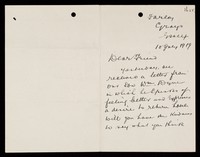 Farley
Grays
Essex
10 Jany 1919
Dear Friend
Yesterday we
received a letter from
our
in which he speaks of
feeling better and
a desire to return home
Will you have the kindness
to say what you think